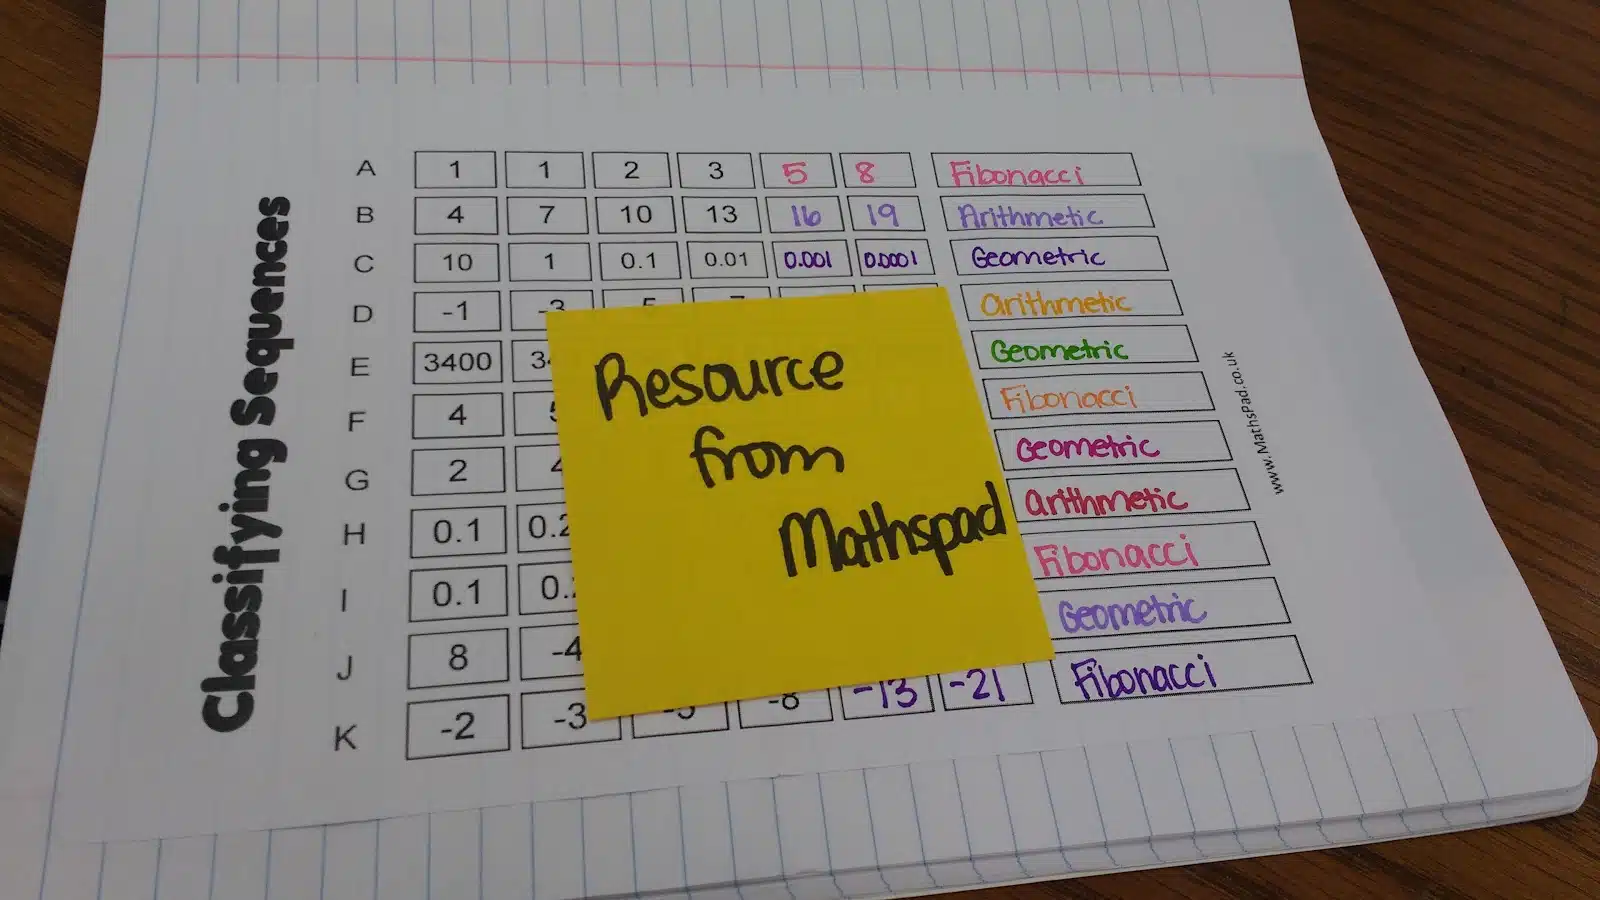 Classifying Sequences
A 1 1 2 3 5 8 Fibonacci
B 4 7 10 13 16 19 Arithmetic
C 10 1 0.1 0.01 0.001 0.0001 Geometric
D -1 -3 arithmetic
E 3400 Geometric
F 4 Fibonacci
G 2 Geometric
H 0.1 arithmetic
I 0.1 Fibonacci
J 8 -4 Geometric
K -2 -3 -5 -8 -13 -21 Fibonacci
Resource
from
Mathspad
www.MathsPad.co.uk